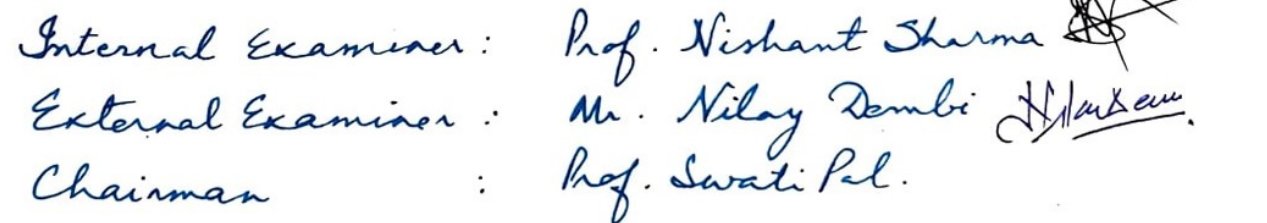 Internal Examiner : Prof. Nishant Sharma
External Examiner : Mr. Nilay Dembi
Chairman : Prof. Swati Pal.